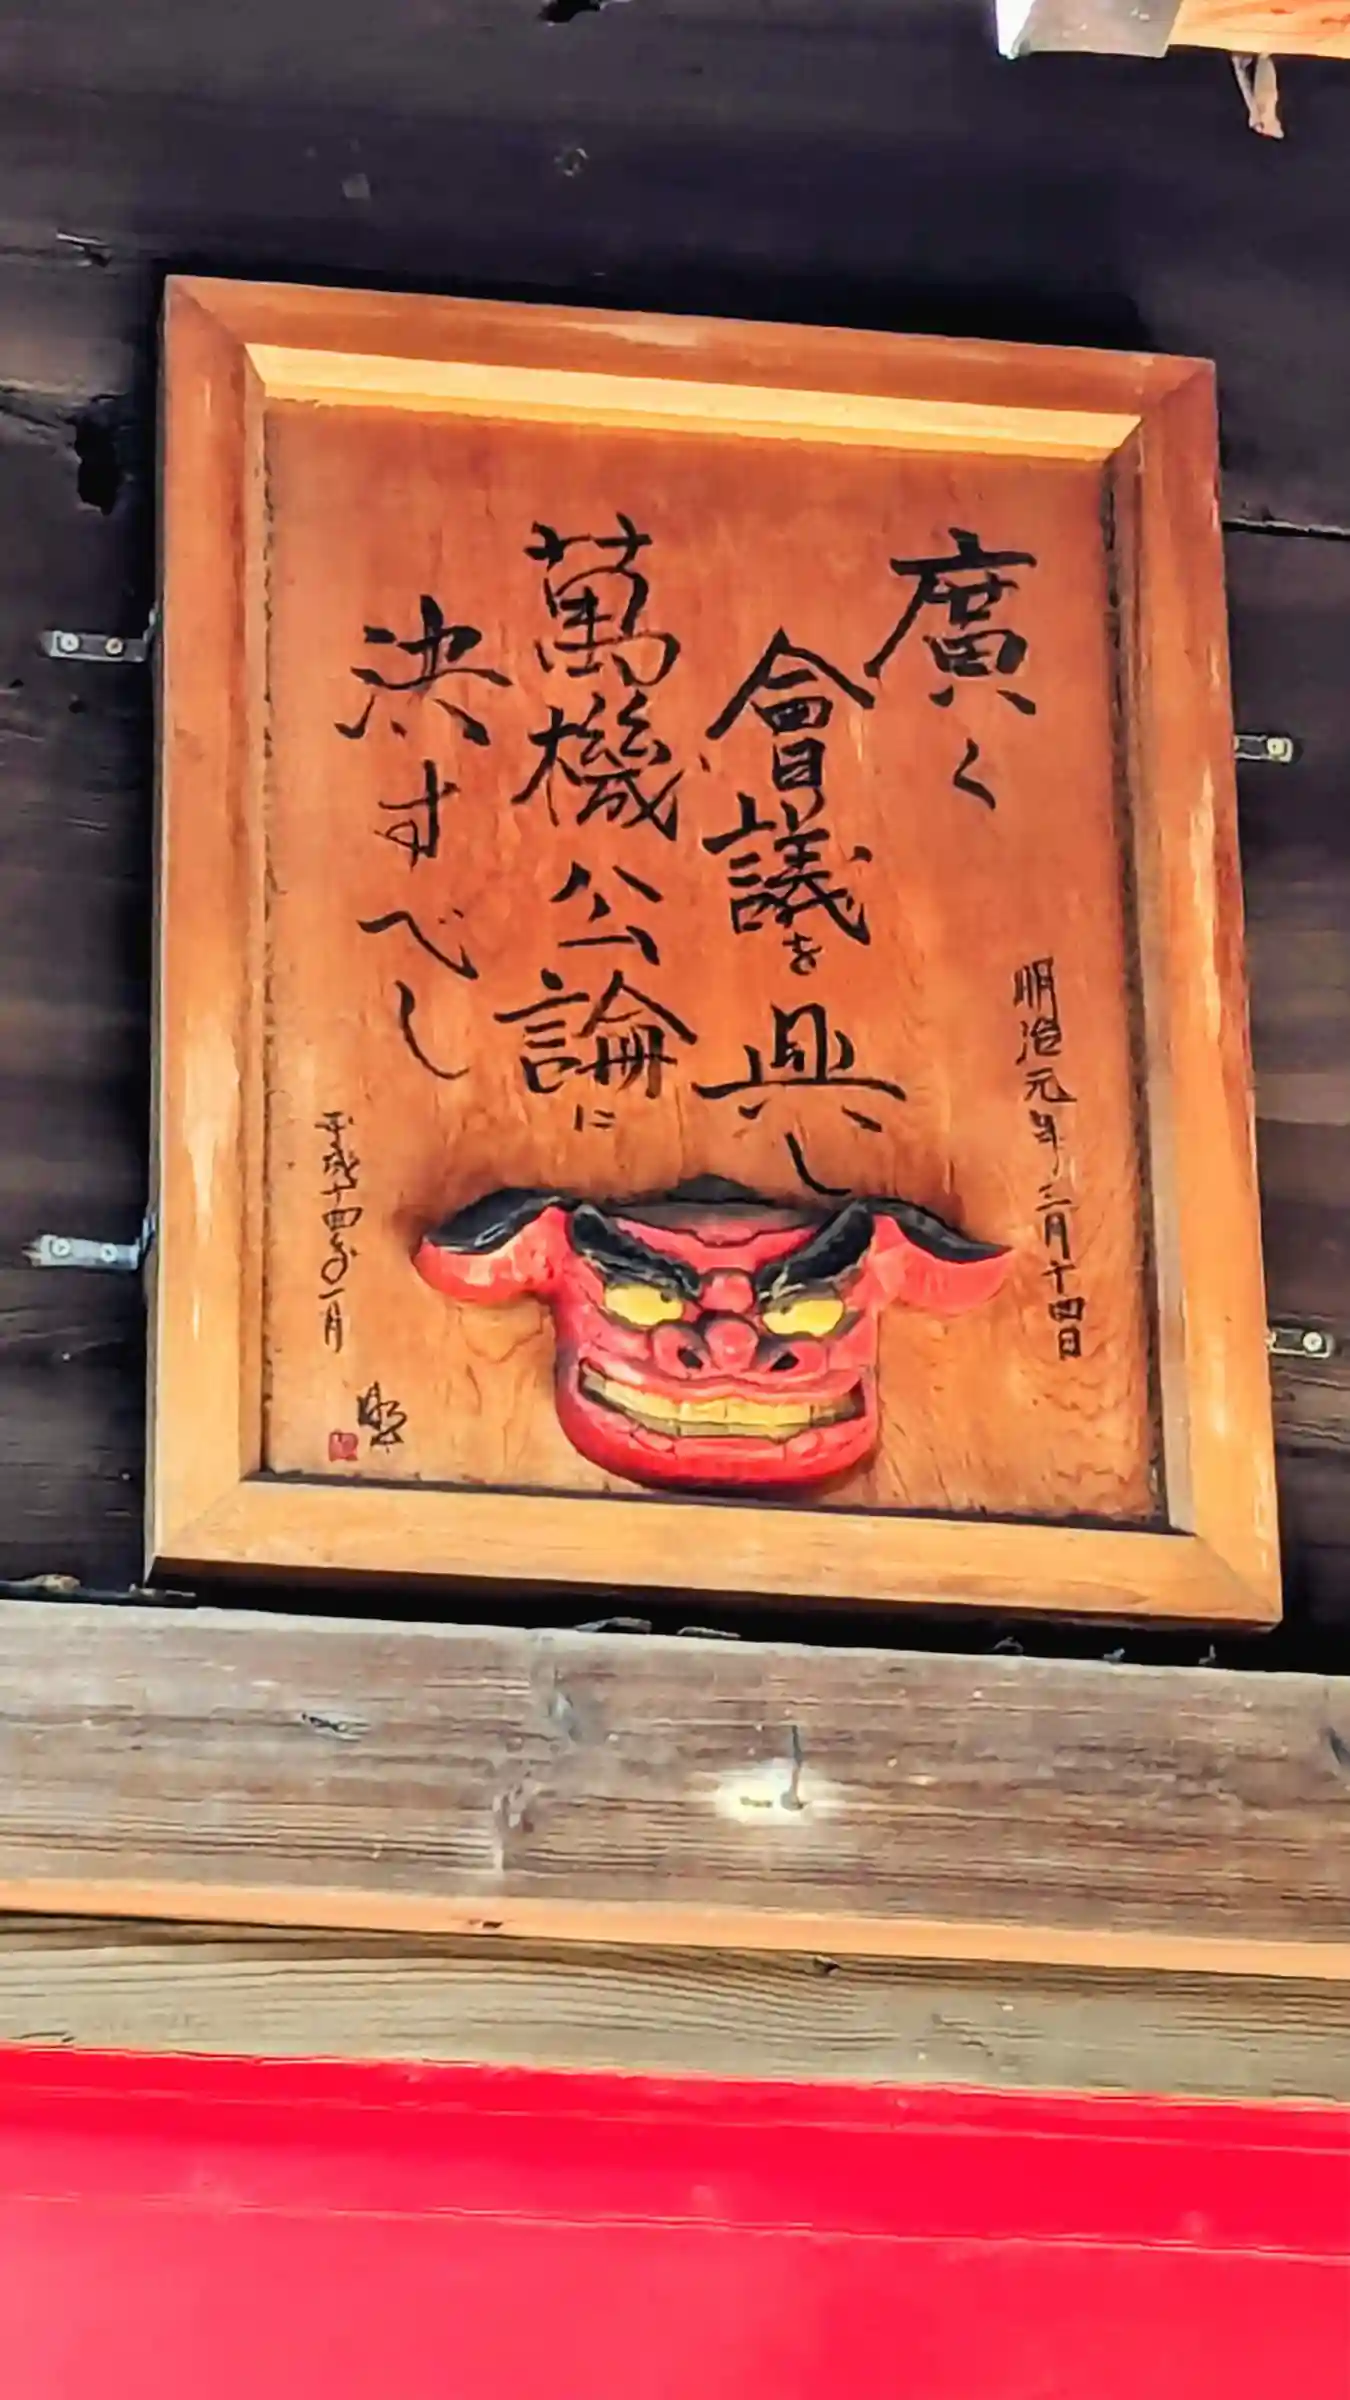 廣く
會議を興し
萬機公論に
決すべし
明治元年三月十四日
平成十四年一月